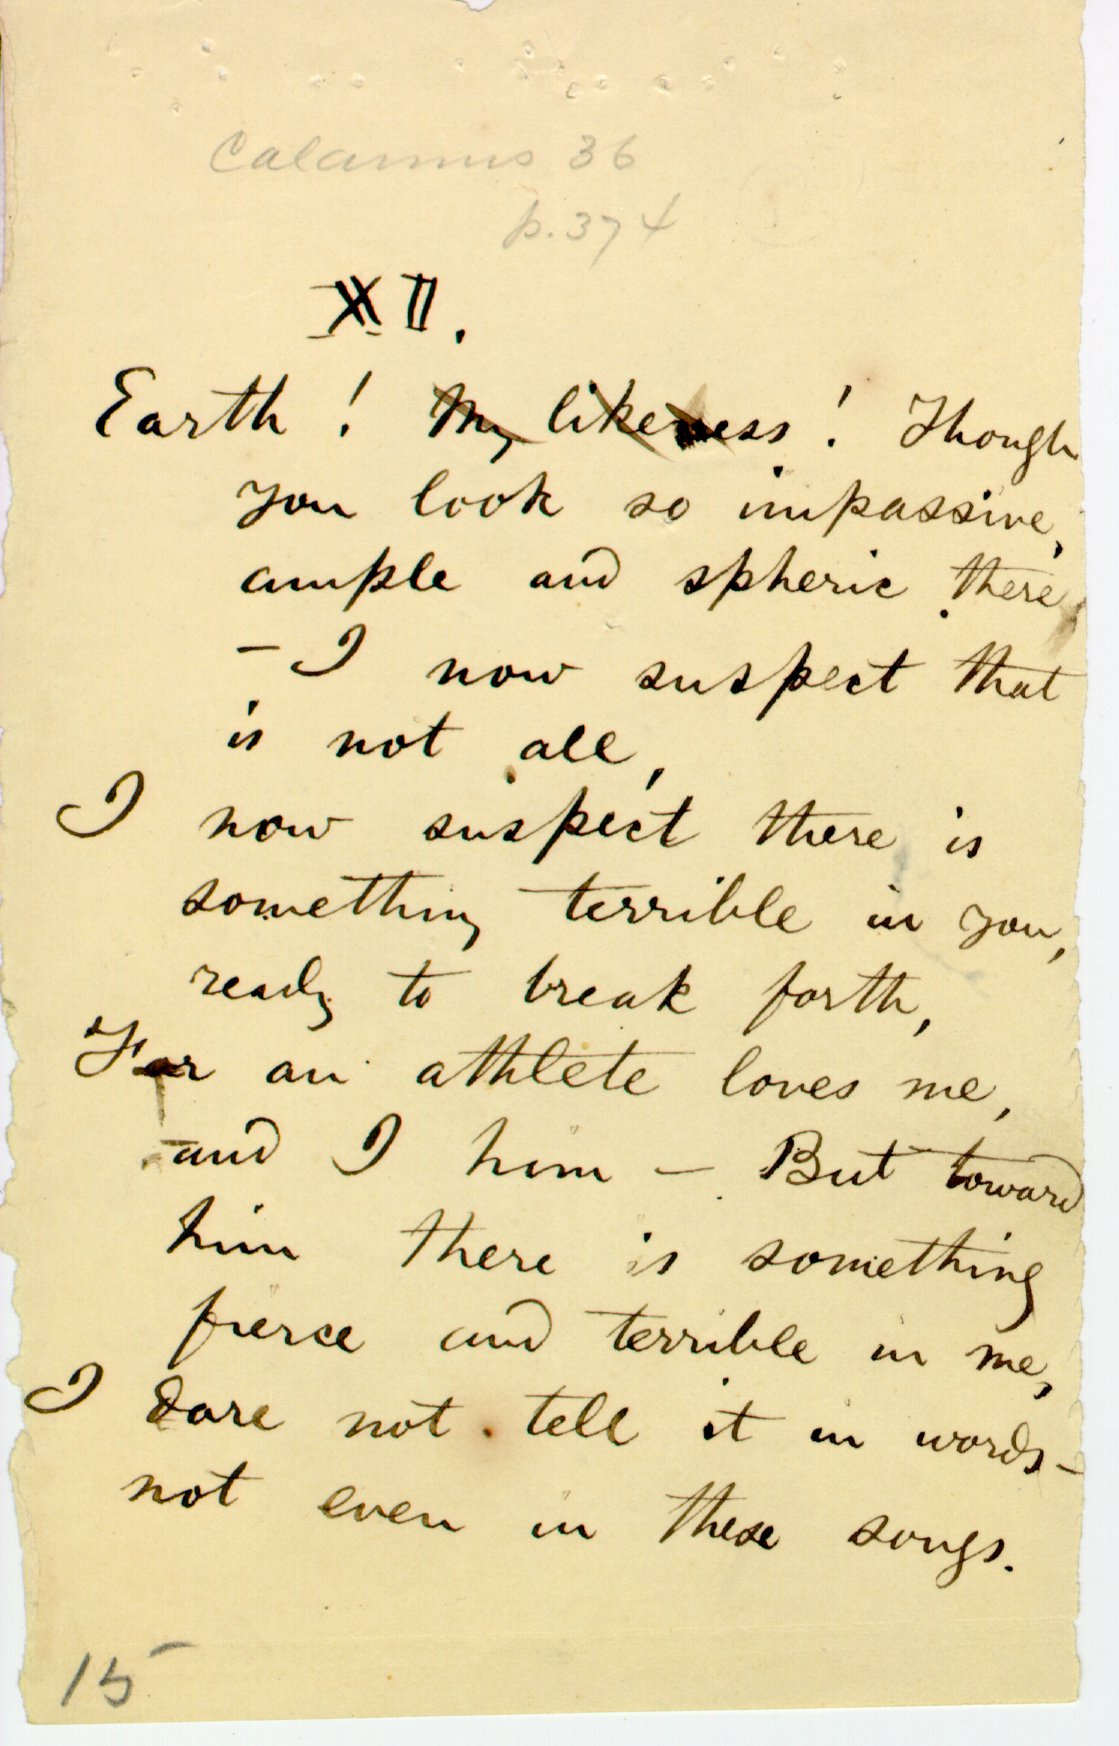 Calamus 36
p. 374
XI.
Earth! My likeness! Though
you look so impassive,
ample and spheric there
– I now suspect that
is not all,
I now suspect there is
something terrible in you,
ready to break forth,
For an athlete loves me,
and I him – But toward
him there is something
fierce and terrible in me,
I dare not tell it in words –
not even in these songs.
15